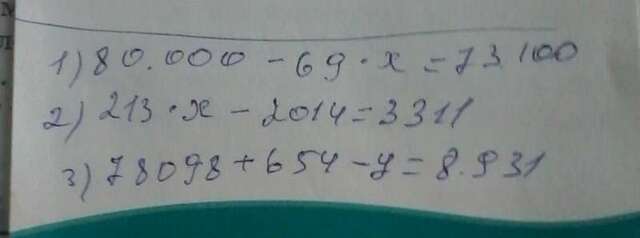 1) 80.000 - 69 · x = 73.100
2) 213 · x - 2014 = 3311
3) 78098 + 654 - y = 8.931